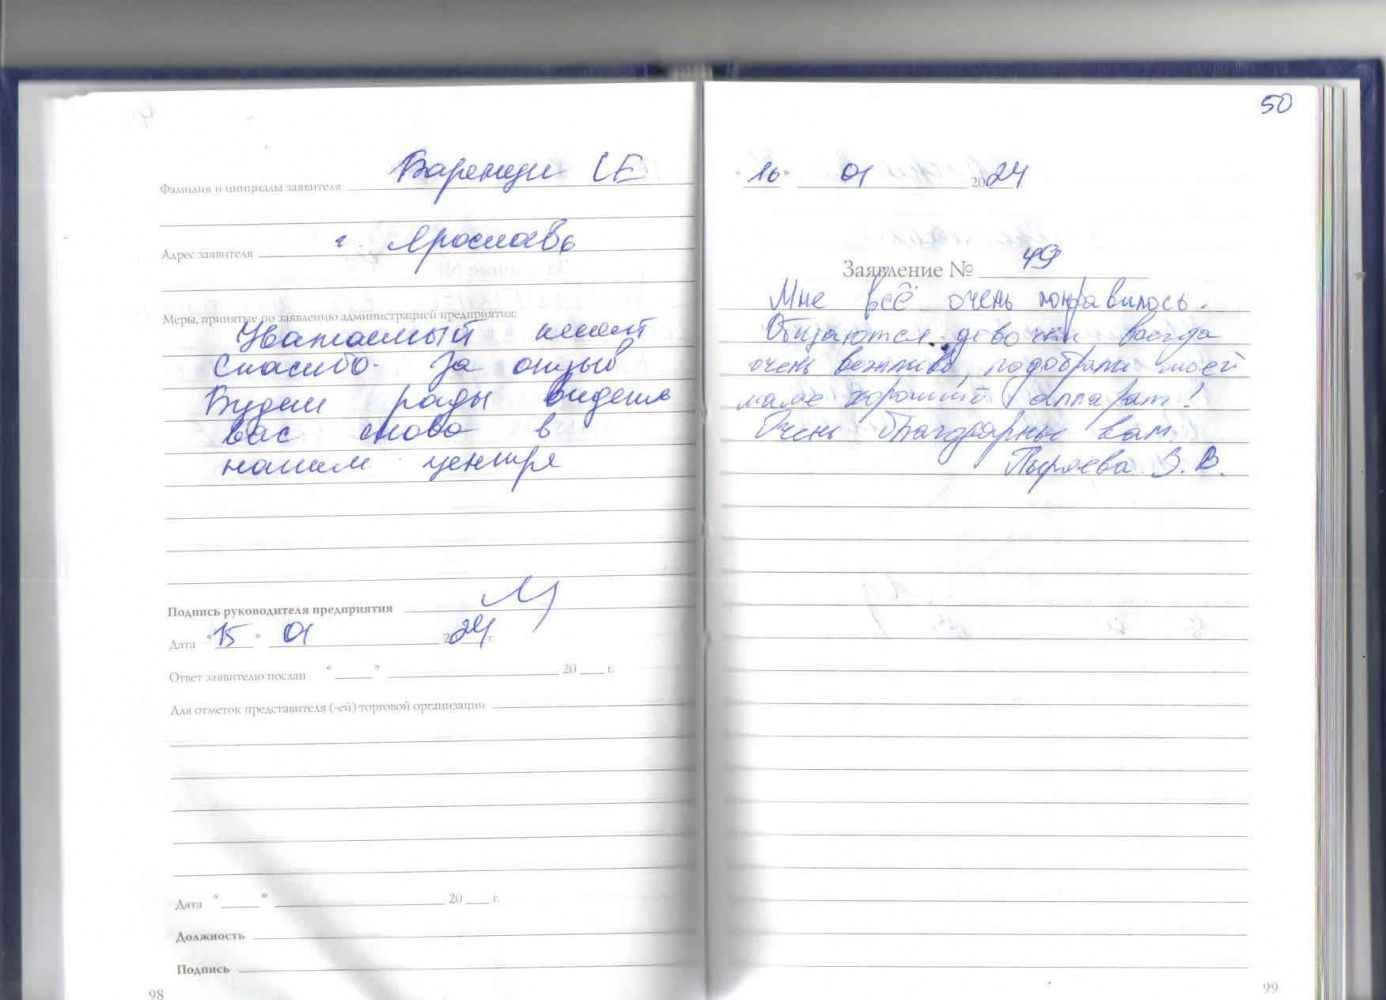 Фамилия и инициалы заявителя Баренци СЕ
Адрес заявителя г. Ярославль
Меры, принятые по заявлению администрацией предприятия:
Уважаемый клиент
Спасибо за отзыв
Будем рады видеть
вас снова в
нашем центре
Подпись руководителя предприятия
Дата "15" 01 2024 г.
Ответ заявителю послан "___" ______ 20 ___ г.
Для отметок представителя (-ей) торговой организации
Дата "___" ______ 20 ___ г.
Должность
Подпись
98
50
"16" 01 2024
Заявление № 49
Мне всё очень понравилось.
Общаются девочки всегда
очень вежливо, подобрали моей
маме хороший аппарат!
Очень благодарны вам
Пыряева З.В.
99